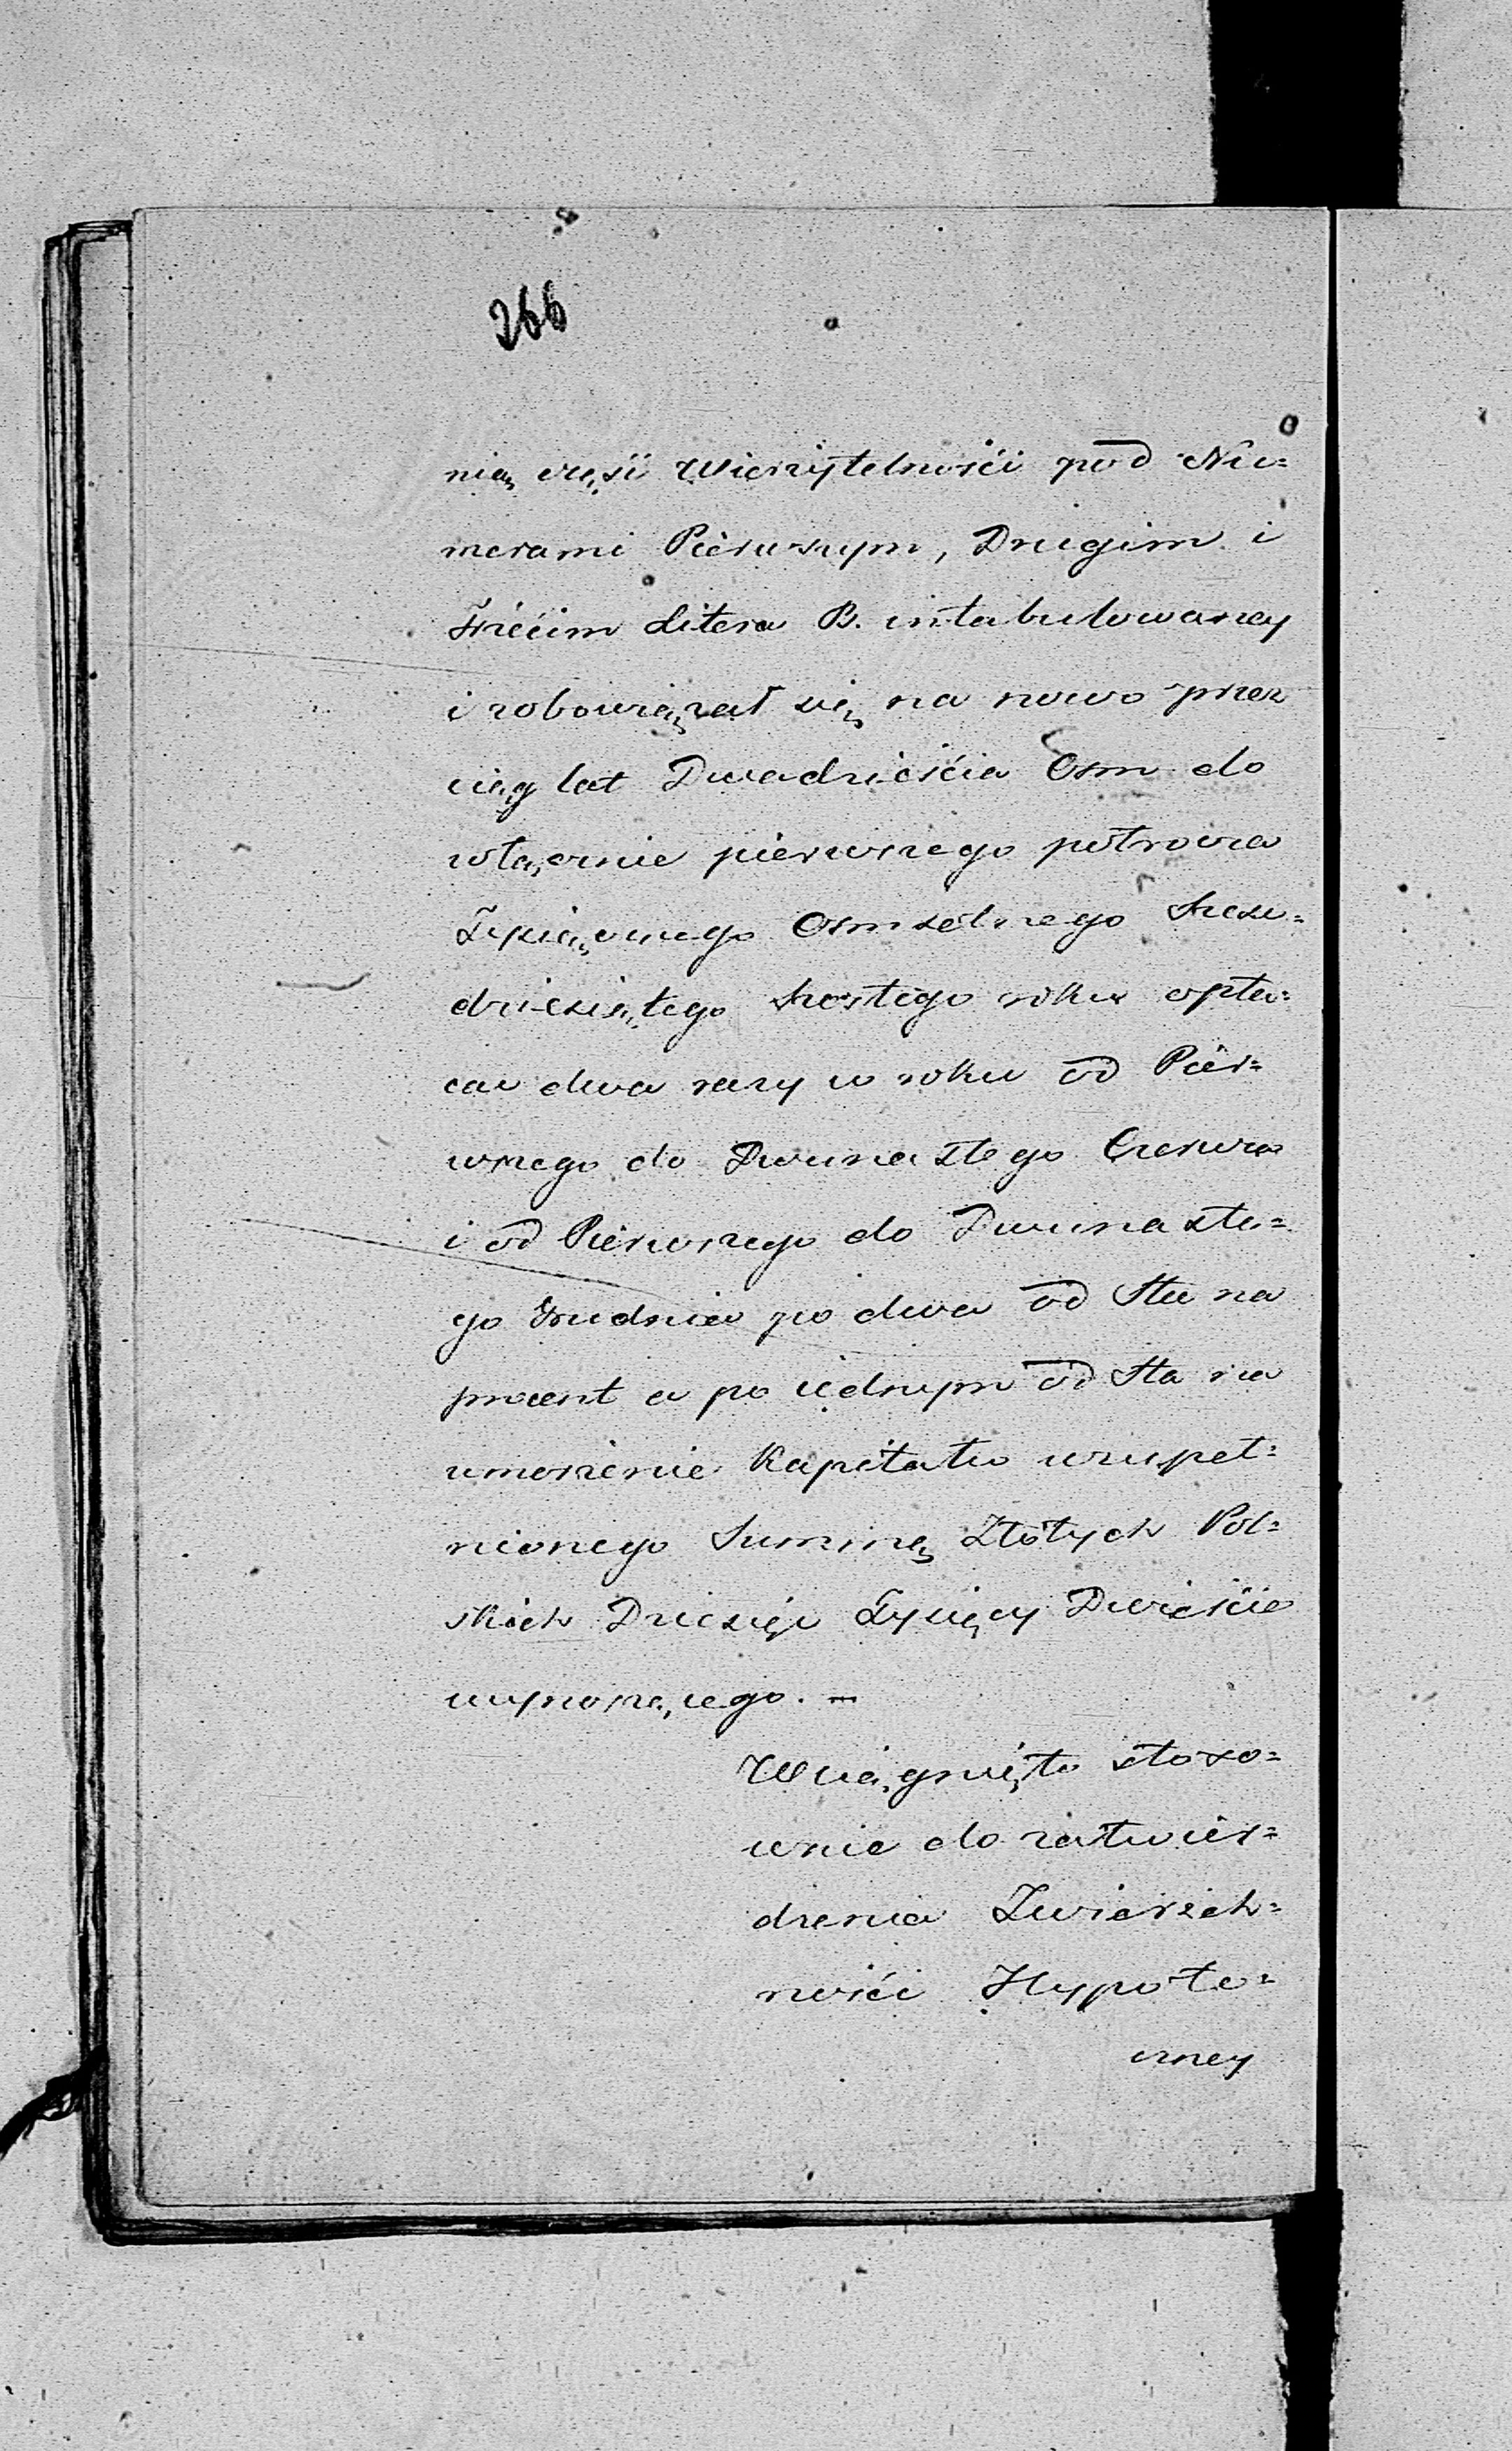 266
nią częsi Wierzytelności pod Nu=
merami Pierwszym, Drugim i
Trzécim Litera B. intabulowaney
i zobowiązał się na nowo przez
ciąg lat Dwadzieścia Osm do
włącznie pierwszego półrocza
Tysiącznego Osmsetnego Szesz=
dziesiątego szóstego roku opła=
cać dwa razy w roku od Pier=
wszego do Dwunastego Czerwca
i od Pierwszego do Dwunaste=
go Grudnia po dwa od Sta na
procent a po iednym od Sta na
umorzenie Kapitału uzupeł=
nionego Summę Złotych Pol=
skich Dziesięć Tysięcy Dwieście
wynoszącego. —
Wciągnięto stoso=
wnie do zatwier=
dzenia Zwierzch=
ności Hypote=
czney